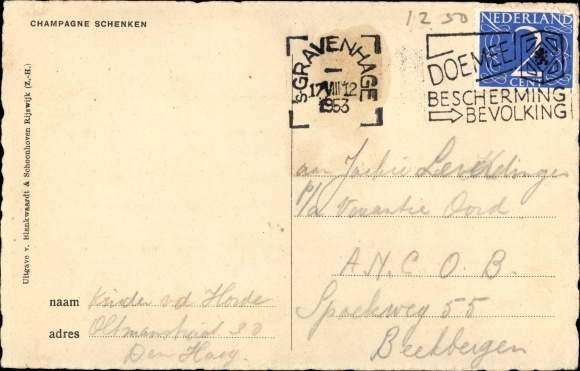 CHAMPAGNE SCHENKEN
12 50
NEDERLAND
2
CENT
'sGRAVENHAGE
17 VIII 12
1953
DOE MEE
BESCHERMING
BEVOLKING
Uitgave v. Blankwaardt & Schoonhoven Rijswijk (Z.-H.)
aan Jackie
p/a Vacantie Oord
A.N.C.O.B.
Spoekweg 55
Beekbergen
naam Kinder v d Horde
adres Oltmanstraat 30
Den Haag.